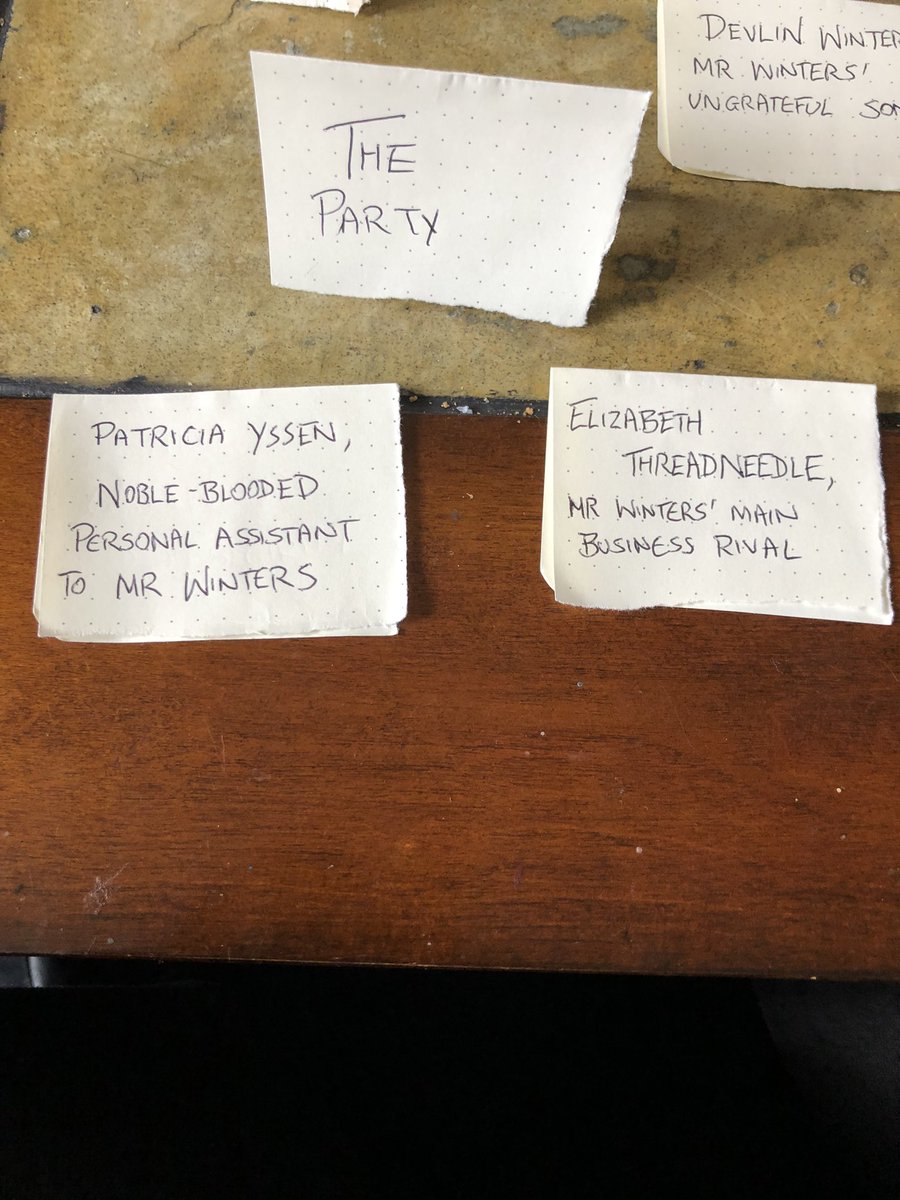 THE
PARTY
DEVLIN WINTER
MR WINTERS'
UNGRATEFUL SON
PATRICIA YSSEN,
NOBLE-BLOODED
PERSONAL ASSISTANT
TO MR WINTERS
ELIZABETH
THREADNEEDLE,
MR WINTERS' MAIN
BUSINESS RIVAL